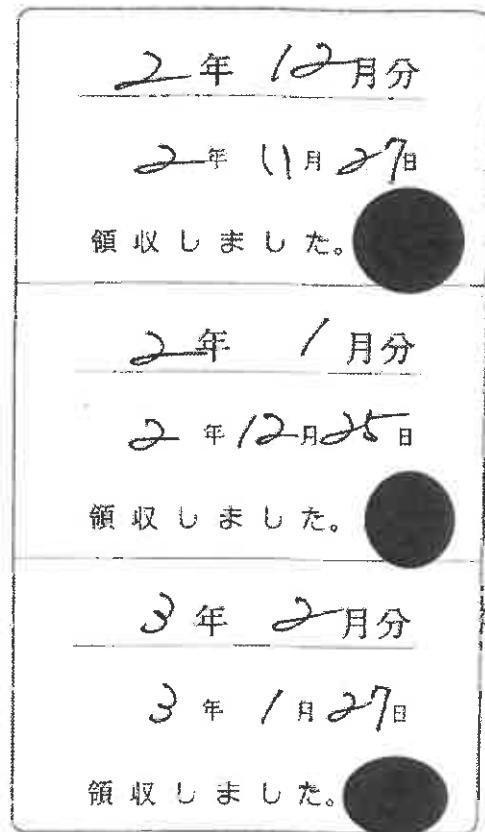 2年 12月分
2年 11月27日
領収しました。
2年 1月分
2年12月25日
領収しました。
3年 2月分
3年 1月27日
領収しました。